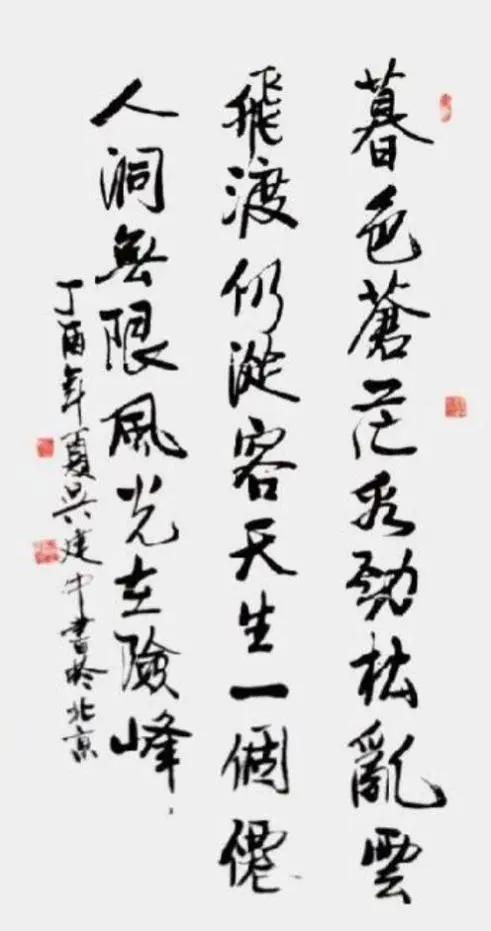 暮色蒼茫看勁松亂雲
飛渡仍從容天生一個僊
人洞無限風光在險峰
丁酉年夏吳建中書於北京